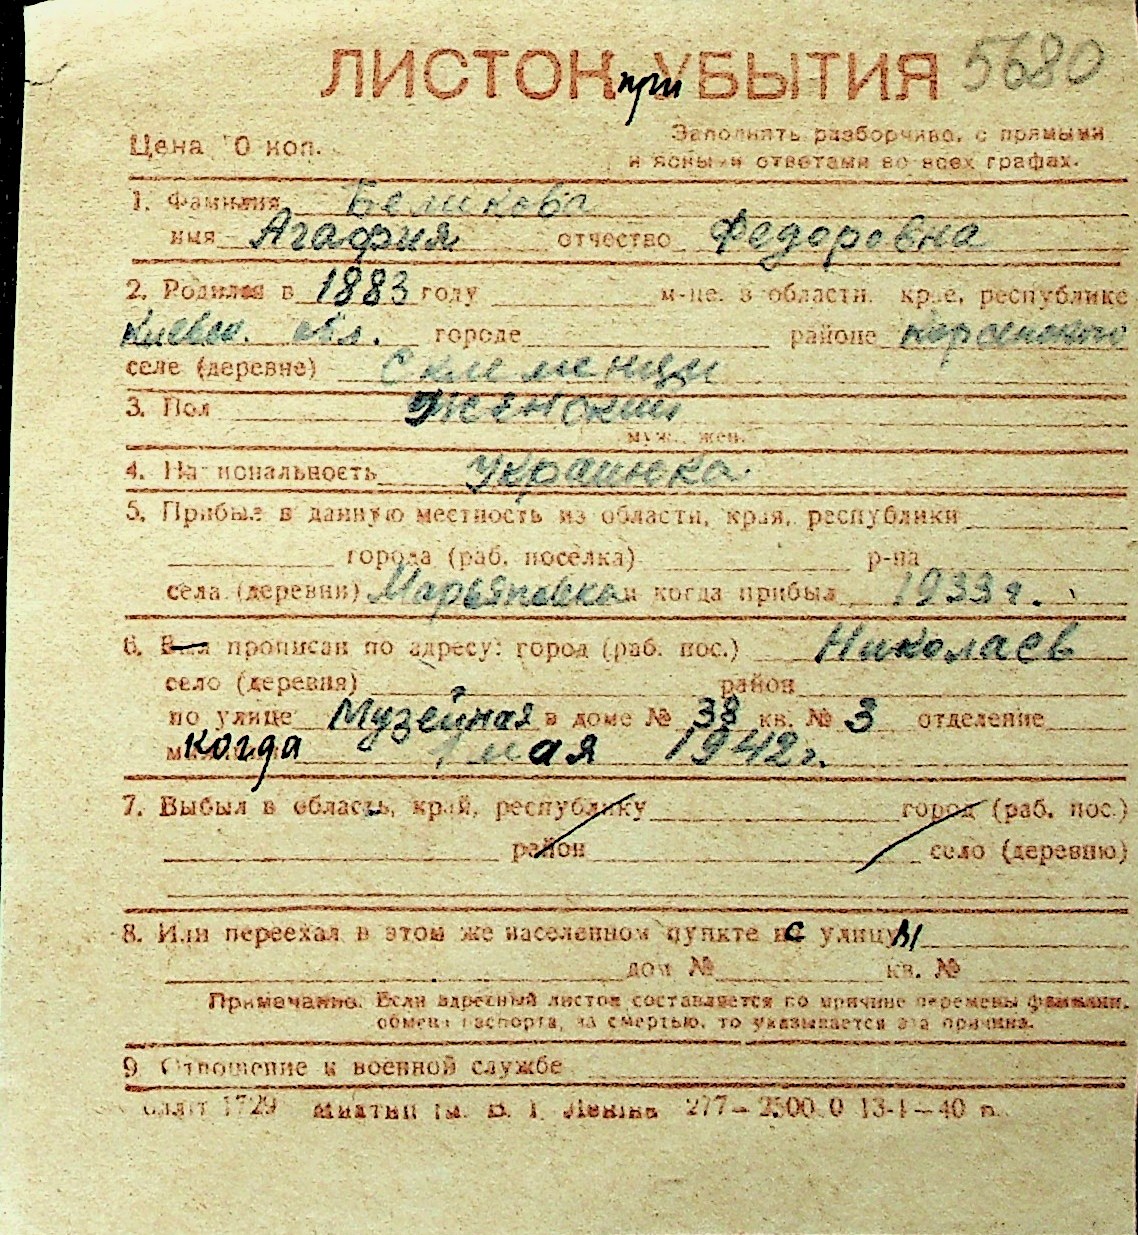 ЛИСТОК при УБЫТИЯ 5680
Цена 10 коп. Заполнять разборчиво, с прямыми
и ясными ответами во всех графах.
1. Фамилия Беликова
имя Агафия отчество Федоровна
2. Родился в 1883 году м-це, в области, крае, республике
Киевск. обл. городе районе
селе (деревне)
3. Пол женский
муж., жен.
4. Национальность украинка
5. Прибыл в данную местность из области, края, республики
города (раб. поселка) р-на
села (деревни) Марьяновка и когда прибыл 1933 г.
6. Был прописан по адресу: город (раб. пос.) Николаев
село (деревня) район
по улице Музейная в доме № 38 кв. № 3 отделение
когда 1 мая 1942 г.
7. Выбыл в область, край, республику город (раб. пос.)
район село (деревню)
8. Или переехал в этом же населенном пункте с улицы
дом № кв. №
Примечание. Если адресный листок составляется по причине перемены фамилии,
обмена паспорта, за смертью, то указывается эта причина.
9. Отношение к военной службе
1729 Миктип їм. В. І. Леніна 277— 13-I—40 п.